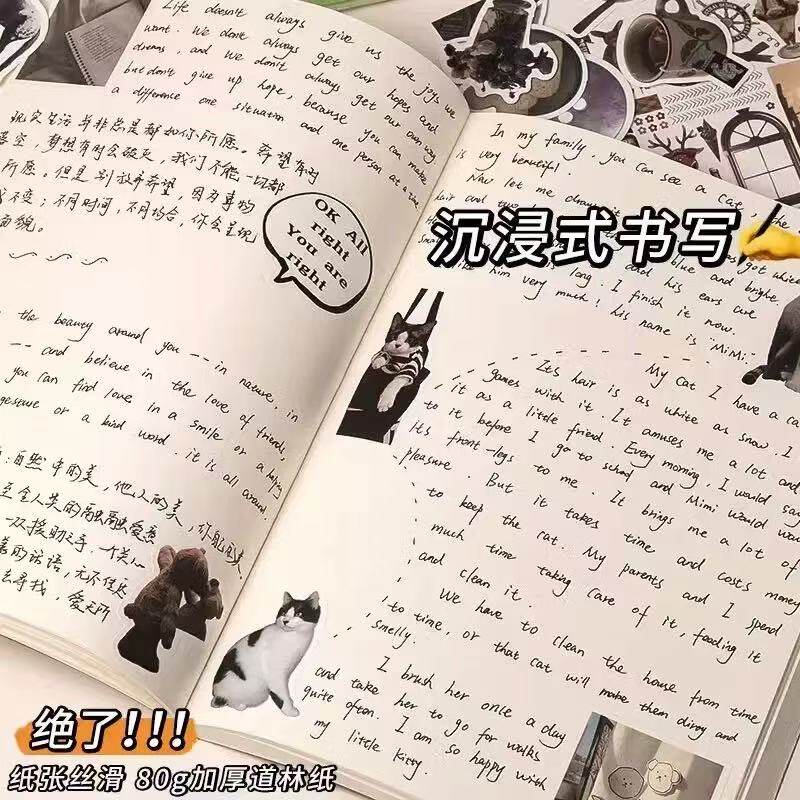 Life doesn't always give us the joys we
want. We don't always get our hopes and
dreams, and we don't always get our own way.
but don't give up hope, because you can make
a difference one situation and one person at a time.
现实生活并非总是都如你所愿。希望有时
落空，梦想有时会破灭，我们不能一切都
所愿。但是别放弃希望，因为事物
不变；不同时间，不同场合，你会呈现
面貌。
OK All
right
You are
right
the beauty around you -- in nature, in
-- and believe in the love of friends,
you can find love in a smile or a helping
gesture or a kind word. it is all around.
：自然中的美，他人的美，
至全人类的融融爱意
一双援助之手，一个关心
的话语，无不住还
去寻找，爱无所
In my family. you can see a cat, the
is very beautiful.
Now let me
hair and two
blue and bright
and his ears are
long. I finish it now.
like him very much! his name is "MiMi."
My Cat I have a cat
Its hair is as white as snow. I
games with it. It amuses me a lot and
it as a little friend. Every morning I would say
to it before I go to school and Mimi would
its front-legs to me. It brings me a lot of
pleasure. But it takes time and costs money
to keep the cat. My parents and I spend
much time taking care of it, feeding it
and clean it.
We have to clean the house from time
to time, or that cat will make them dirty and
smelly.
I brush her once a day
and take her to go for walks
quite often. I am so happy with
my little kitty.
沉浸式书写
绝了!!!
纸张丝滑 80g加厚道林纸